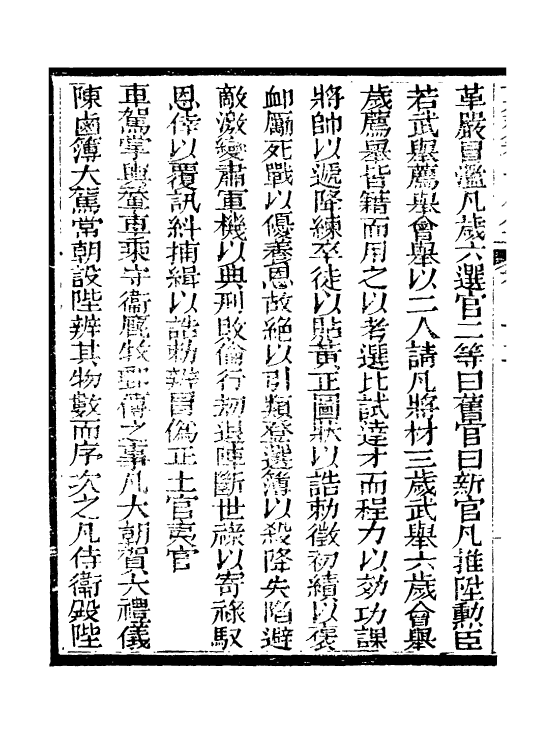 革嚴冒濫凡歲六選官二等曰舊官曰新官凡推陞勳臣
若武舉薦舉會舉以二人請凡將材三歲武舉六歲會舉
歲薦舉皆籍而用之以考選比試達才而程力以効功課
將帥以遞降練卒徒以貼黃正圖狀以誥勅徵初績以褒
卹勵死戰以優養恩故絕以引類登選簿以殺降失陷避
敵激變肅軍機以典刑敗倫行劫退陣斷世祿以寄祿馭
恩倖以覆訊糾捕緝以誥勅辨冒偽正土官夷官
車駕掌輿輦車乘守衛廐牧郵傳之事凡大朝賀大禮儀
陳鹵簿大駕常朝設陛辨其物數而序次之凡侍衛殿陛